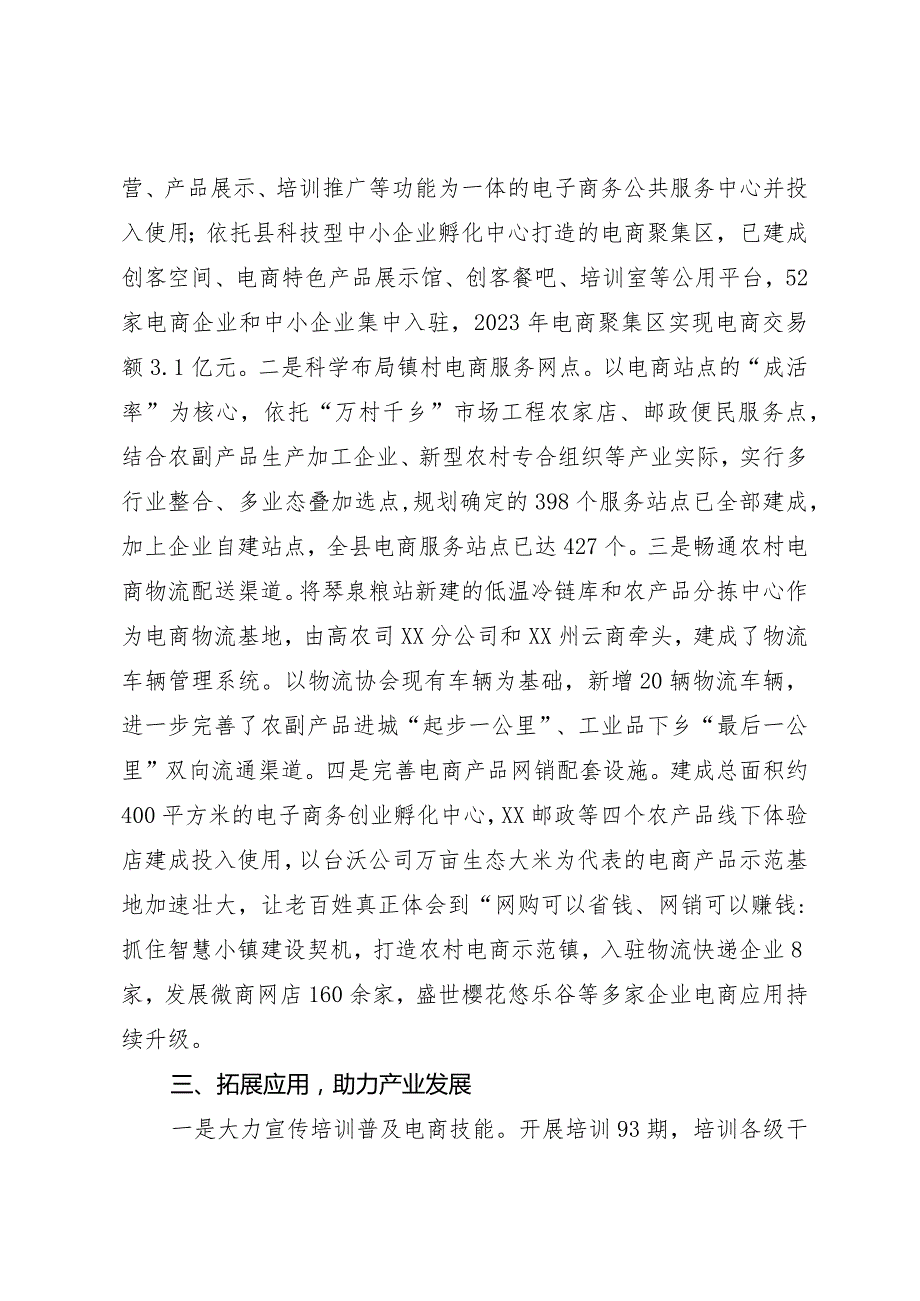 营、产品展示、培训推广等功能为一体的电子商务公共服务中心并投
入使用；依托县科技型中小企业孵化中心打造的电商聚集区，已建成
创客空间、电商特色产品展示馆、创客餐吧、培训室等公用平台，52
家电商企业和中小企业集中入驻，2023 年电商聚集区实现电商交易
额 3.1 亿元。二是科学布局镇村电商服务网点。以电商站点的“成活
率”为核心，依托“万村千乡”市场工程农家店、邮政便民服务点，
结合农副产品生产加工企业、新型农村专合组织等产业实际，实行多
行业整合、多业态叠加选点,规划确定的 398 个服务站点已全部建成，
加上企业自建站点，全县电商服务站点已达 427 个。三是畅通农村电
商物流配送渠道。将琴泉粮站新建的低温冷链库和农产品分拣中心作
为电商物流基地，由高农司 XX 分公司和 XX 州云商牵头，建成了物流
车辆管理系统。以物流协会现有车辆为基础，新增 20 辆物流车辆，
进一步完善了农副产品进城“起步一公里”、工业品下乡“最后一公
里”双向流通渠道。四是完善电商产品网销配套设施。建成总面积约
400 平方米的电子商务创业孵化中心，XX 邮政等四个农产品线下体验
店建成投入使用，以台沃公司万亩生态大米为代表的电商产品示范基
地加速壮大，让老百姓真正体会到“网购可以省钱、网销可以赚钱:
抓住智慧小镇建设契机，打造农村电商示范镇，入驻物流快递企业 8
家，发展微商网店 160 余家，盛世樱花悠乐谷等多家企业电商应用持
续升级。
三、拓展应用，助力产业发展
一是大力宣传培训普及电商技能。开展培训 93 期，培训各级干